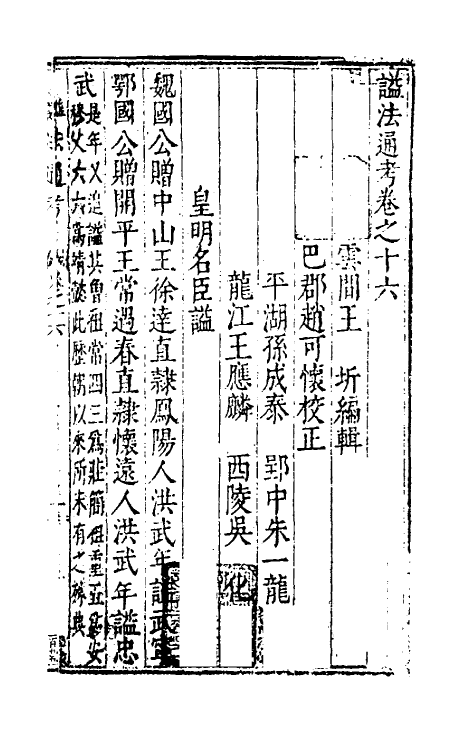 諡法通考卷之十六
雲間王　圻編輯
巴郡趙可懷校正
平湖孫成泰　郢中朱一龍
龍江王應麟　西陵吳　化
皇明名臣諡
魏國公贈中山王徐達直隸鳳陽人洪武年諡武寧
鄂國公贈開平王常遇春直隸懷遠人洪武年諡忠
武是年又追諡其曾祖常四三爲莊簡祖重五爲安
穆父六六爲靖懿此歷代以來所未有之殊典